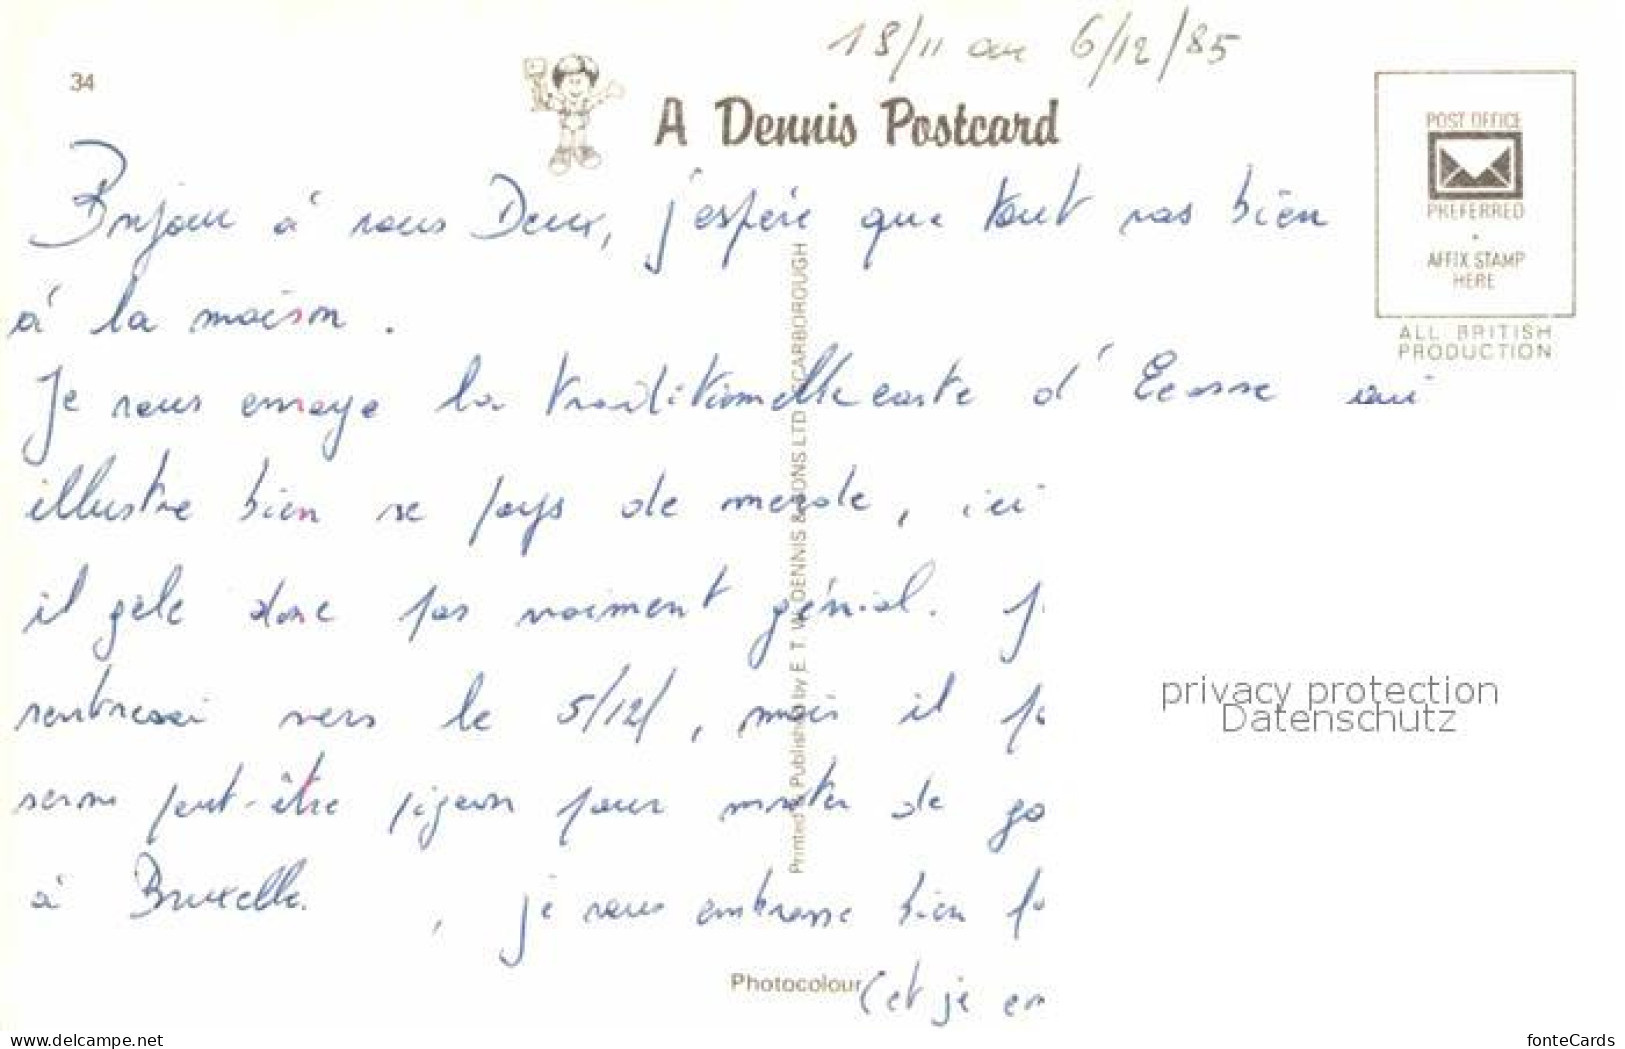 18/11 au 6/12/85
34
A Dennis Postcard
POST OFFICE
PREFERRED
AFFIX STAMP
HERE
ALL BRITISH
PRODUCTION
Bonjour à vous Deux, j'espère que tout vas bien
à la maison.
Je vous envoye la traditionnelle carte d'Ecosse qui
illustre bien se pays de merde, ici
il gèle donc pas vraiment génial. J
rentrerai vers le 5/12/, mais il
serons peut-être pigeon pour monter de
à Bruxelle. , je vous embrasse bien
(et je
Printed & Published by E. T. W. DENNIS & SONS LTD SCARBOROUGH
Photocolour
privacy protection
Datenschutz
www.delcampe.net
fonteCards